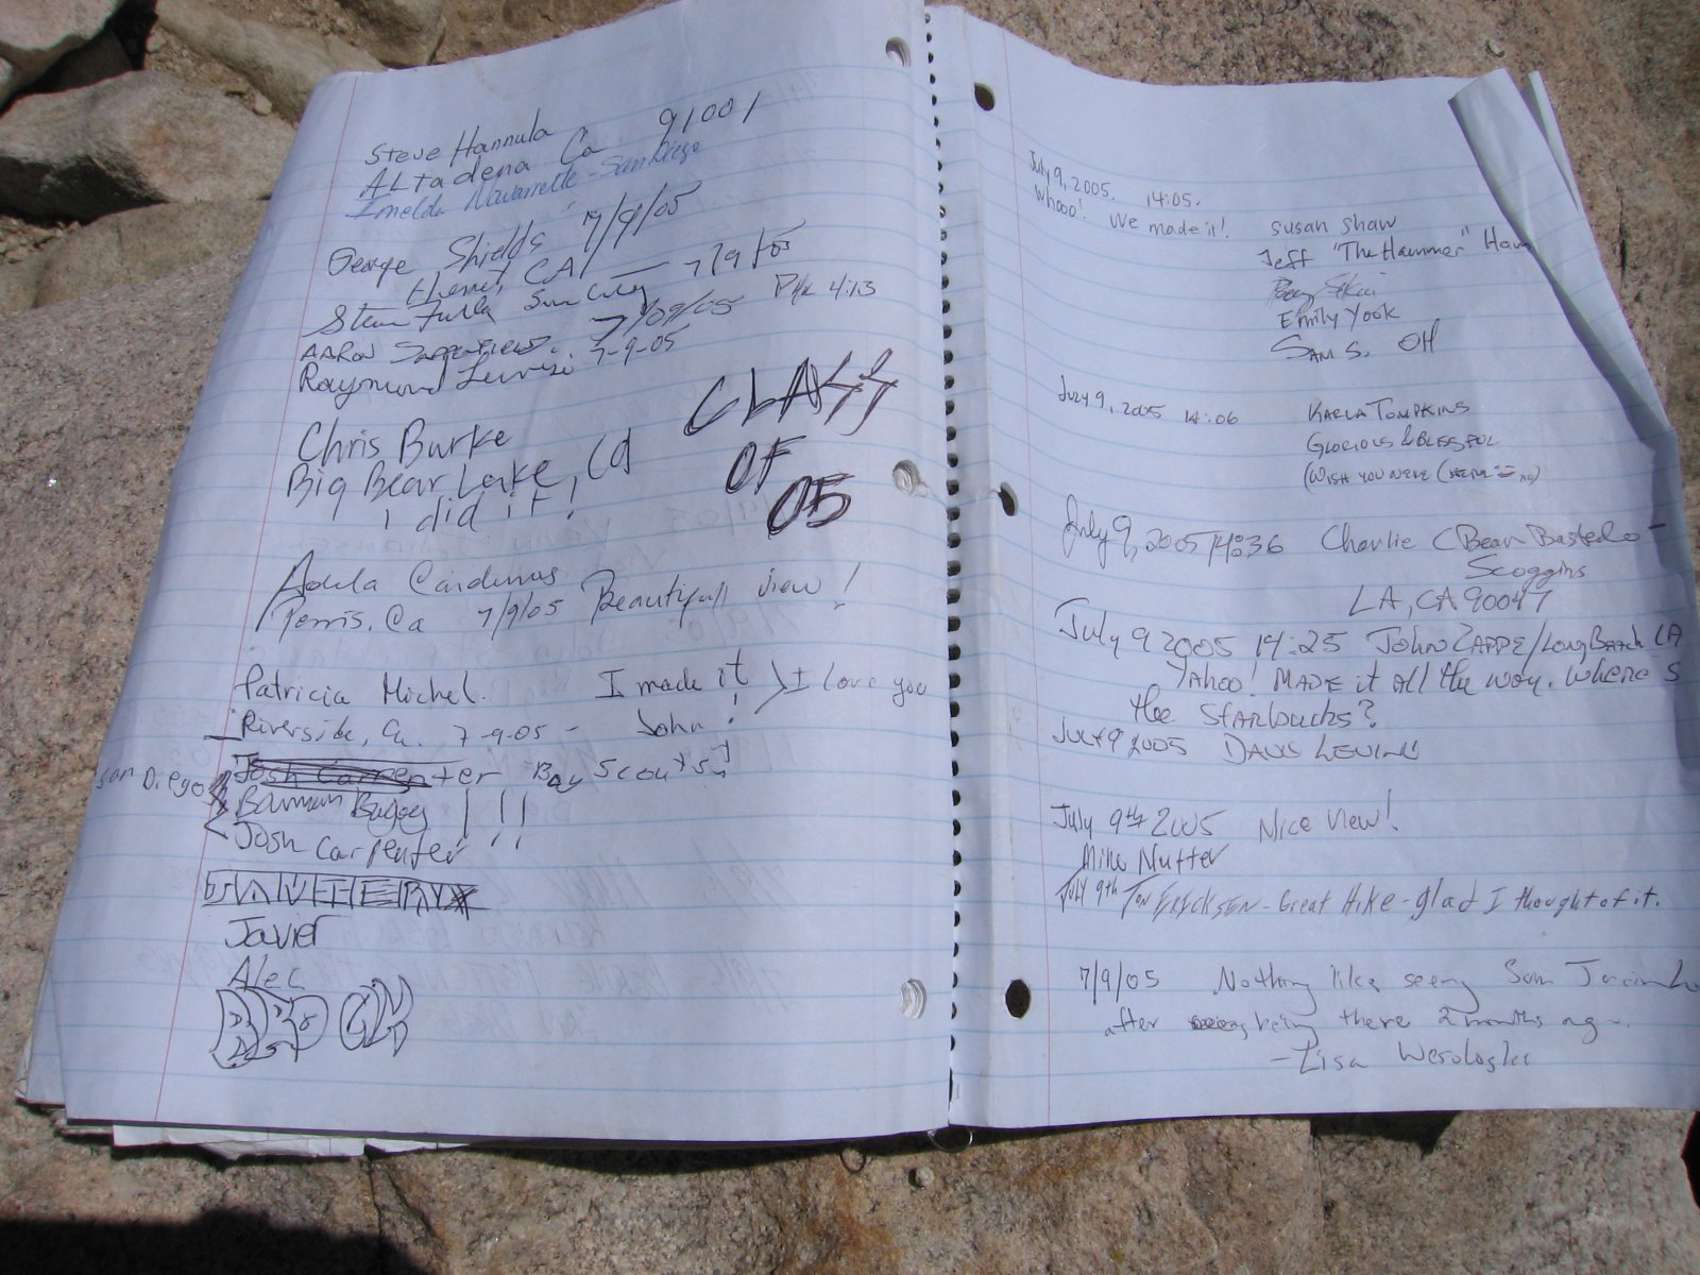 Steve Hannula
Altadena Ca 91001
Imelda Navarrette - San Diego
George Shields 7/9/05
Hemet, CA
Sun City — 7/9/05
AARON 7/09/05 4:13
Raymond 7-9-05
CLASS
OF
05
Chris Burke
Big Bear Lake, Ca
i did it!
Adela Cardenas
Perris, Ca 7/9/05 Beautifull view!
Patricia Michel. I made it I love you
Riverside, Ca. 7-9-05 - John!
Josh Carpenter Boy Scouts!
San Diego
Josh Carpenter !!!
Javier
Alec
July 9, 2005. 14:05.
Whooo! We made it! Susan Shaw
Jeff "The Hammer" Ham
Emily Yook
SAM S. OH
July 9, 2005 14:06 KARLA TOMPKINS
GLORIOUS & BLESSFUL
(WISH YOU WERE
July 9, 2005 14:36 Charlie (Bear Bastedo -
Scoggins
LA, CA 90047
July 9 2005 14:25 John ZAPPE/Long Beach CA
Yahoo! MADE it all the way. Where's
the Starbucks?
July 9 2005
July 9th 2005 Nice View!
Mike Nutter
July 9th ERICKSEN - Great Hike - glad I thought of it.
7/9/05 Nothing like seeing San Jacinto
after being there 2 months ago.
- Lisa